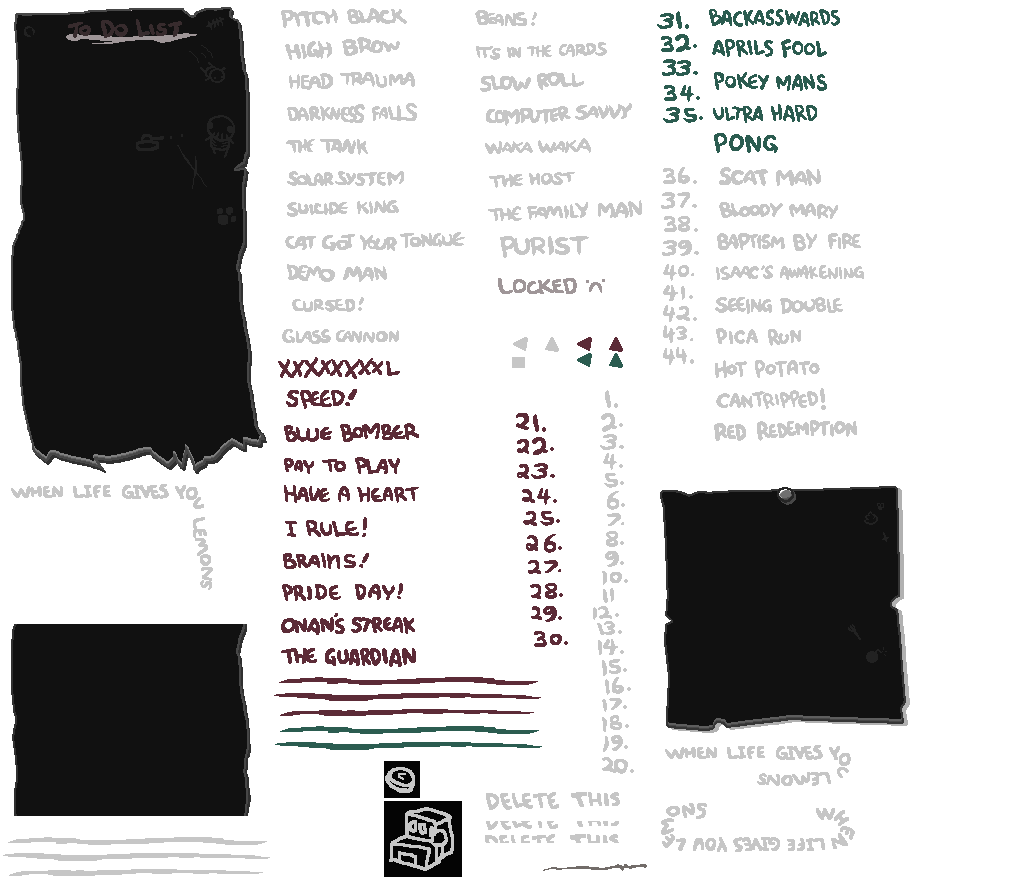 TO DO LIST
PITCH BLACK
HIGH BROW
HEAD TRAUMA
DARKNESS FALLS
THE TANK
SOLAR SYSTEM
SUICIDE KING
CAT GOT YOUR TONGUE
DEMO MAN
CURSED!
GLASS CANNON
XXXXXXXXL
SPEED!
BLUE BOMBER
PAY TO PLAY
HAVE A HEART
I RULE!
BRAINS!
PRIDE DAY!
ONAN'S STREAK
THE GUARDIAN
BEANS!
IT'S IN THE CARDS
SLOW ROLL
COMPUTER SAVVY
WAKA WAKA
THE HOST
THE FAMILY MAN
PURIST
LOCKED 'n'
21.
22.
23.
24.
25.
26.
27.
28.
29.
30.
1.
2.
3.
4.
5.
6.
7.
8.
9.
10.
11
12.
13.
14.
15.
16.
17.
18.
19.
20.
DELETE THIS
DELETE THIS
DELETE THIS
31.
32.
33.
34.
35.
36.
37.
38.
39.
40.
41.
42.
43.
44.
BACKASSWARDS
APRILS FOOL
POKEY MANS
ULTRA HARD
PONG
SCAT MAN
BLOODY MARY
BAPTISM BY FIRE
ISAAC'S AWAKENING
SEEING DOUBLE
PICA RUN
HOT POTATO
CANTRIPPED!
RED REDEMPTION
WHEN LIFE GIVES YOU LEMONS
WHEN LIFE GIVES YOU LEMONS
WHEN LIFE GIVES YOU LEMONS